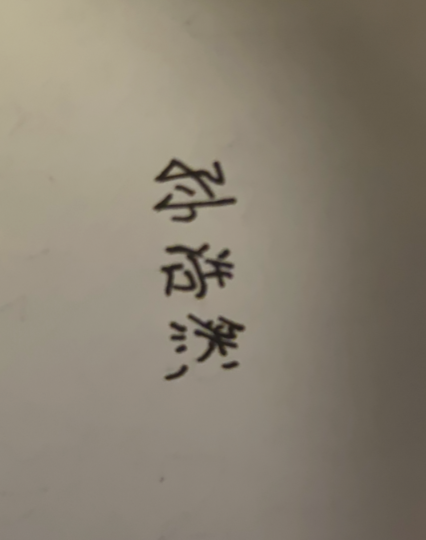 孙浩然